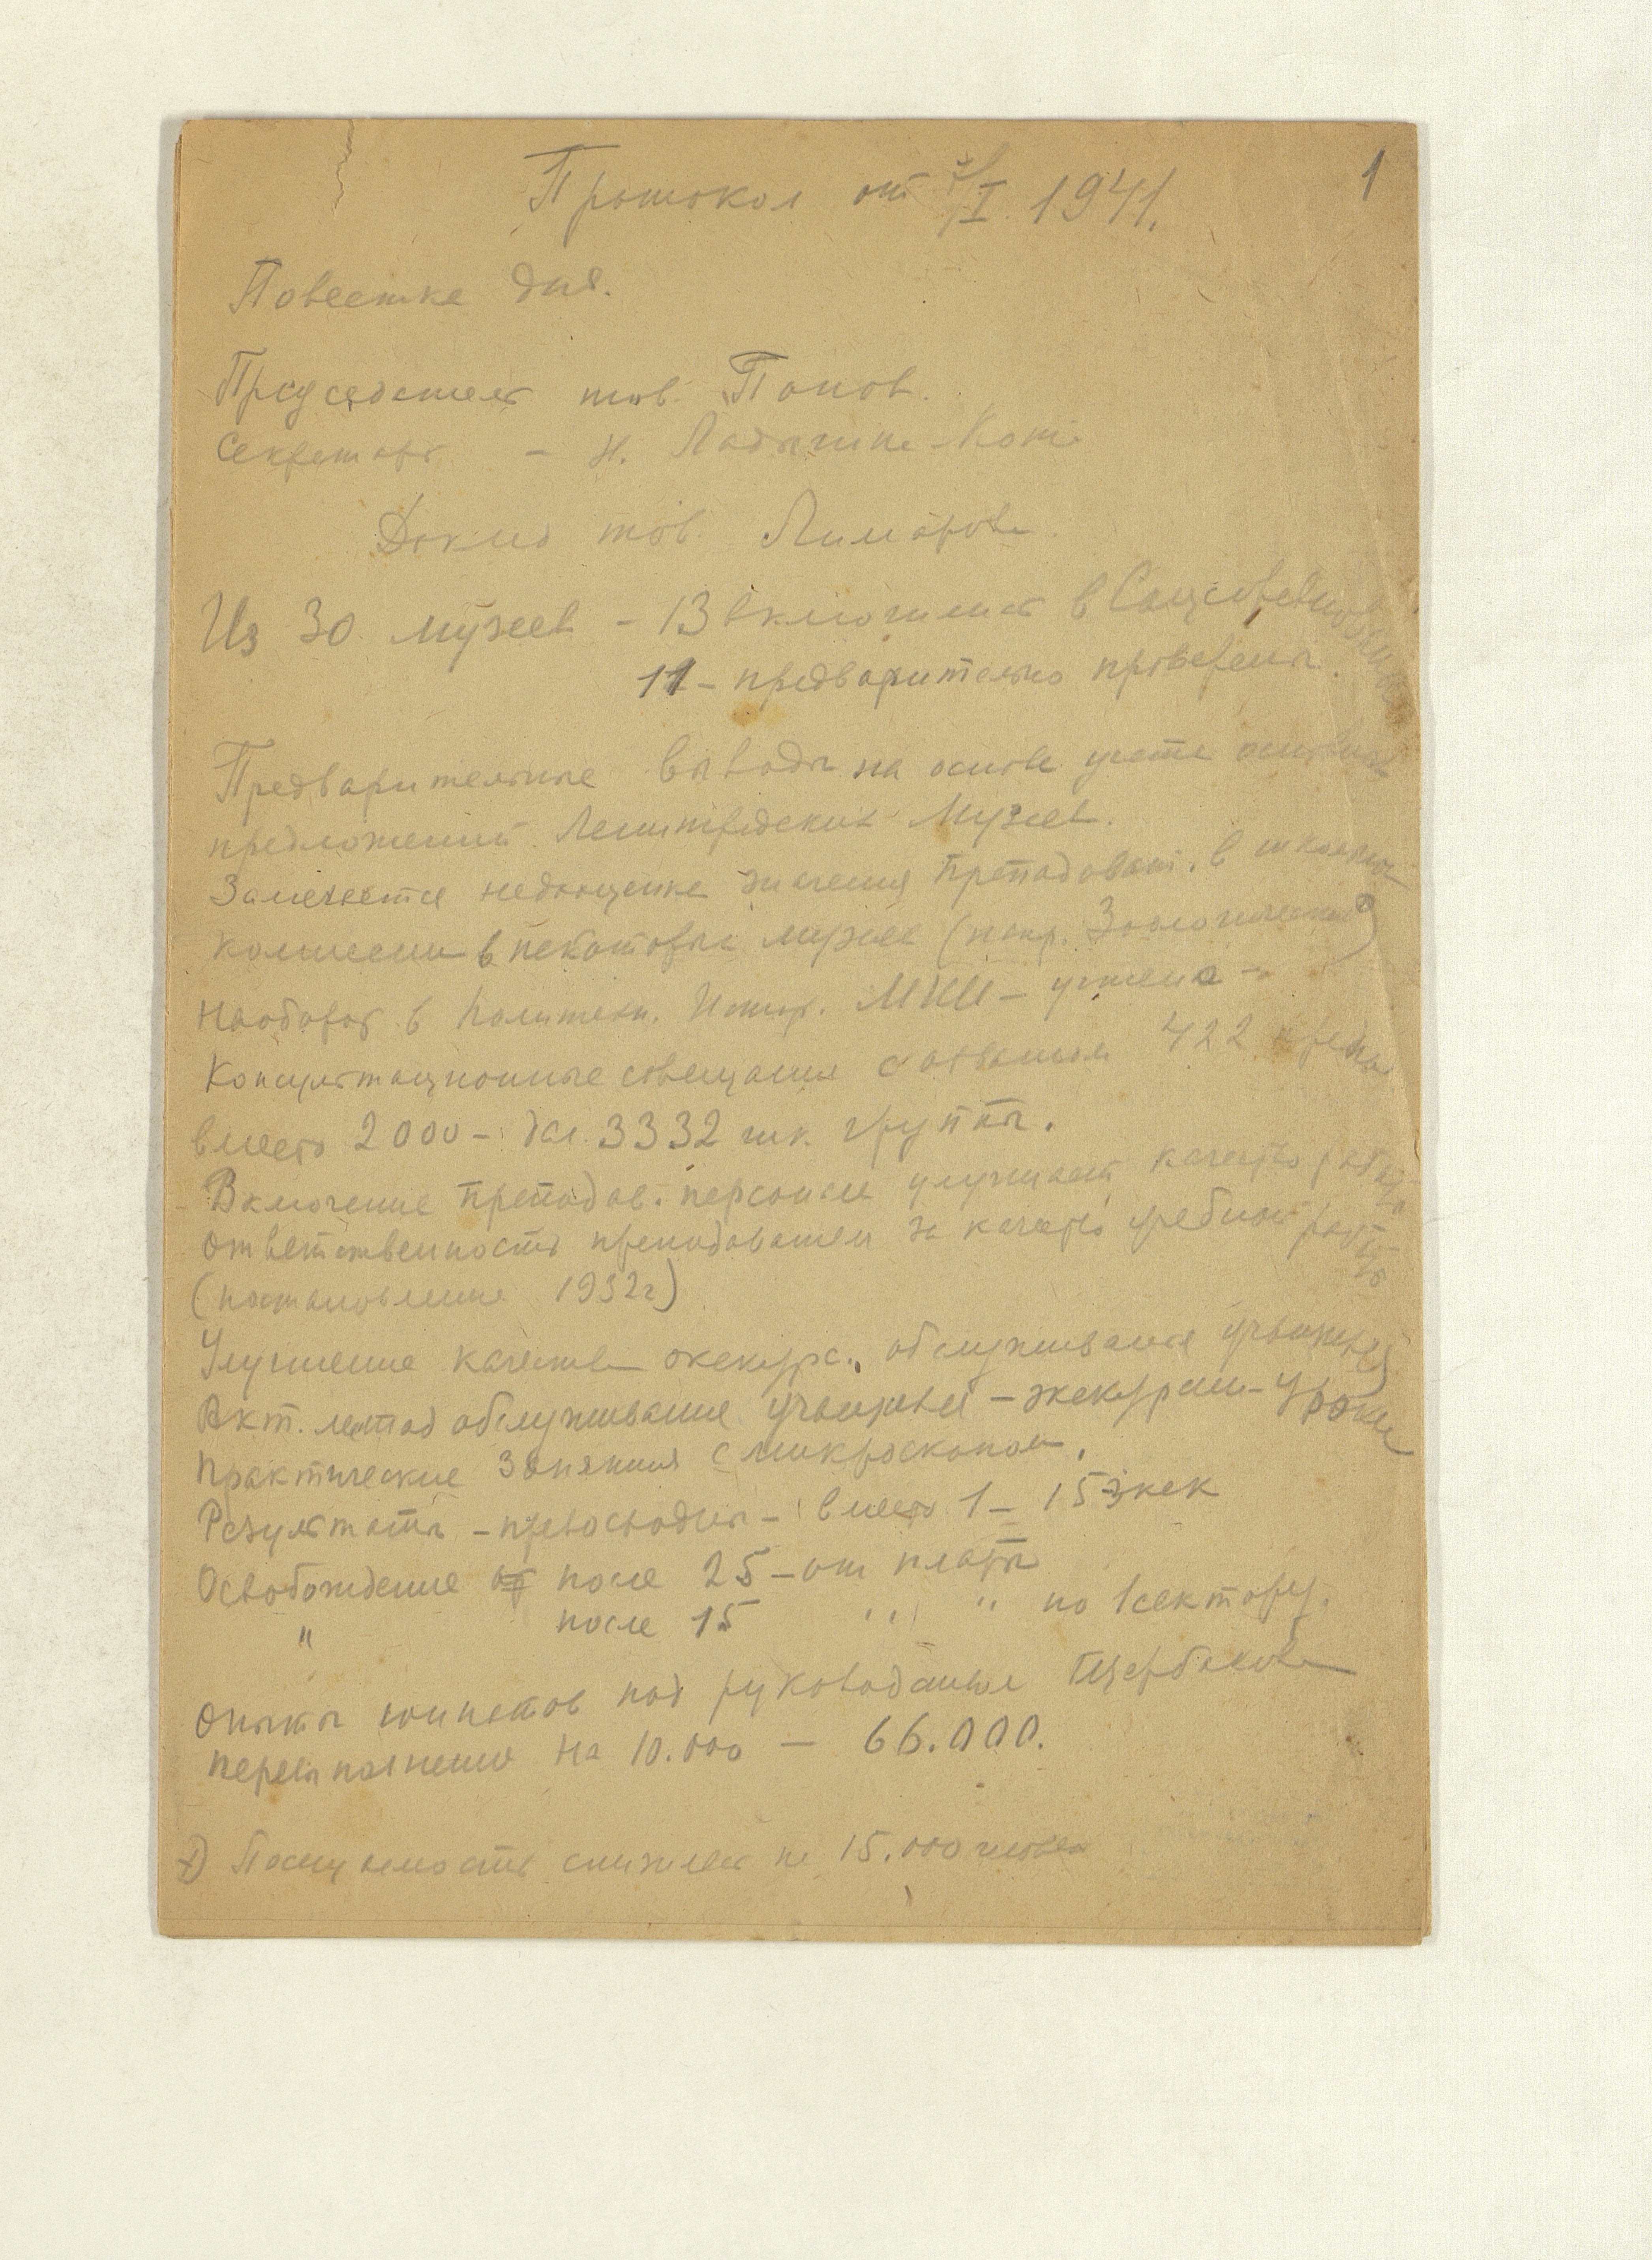 1
Протокол от /I 1941.
Повестка дня.
Председатель тов. Попов.
Секретарь - Н. Ладыгина-Котс
Доклад тов.
Из 30 музеев - 13 включились в Соцсоревнование
11 - предварительно проверены.
Предварительные выводы на основе учета основных
предложений Ленинградских Музеев.
Замечается недооценка значения преподават. в школьной
комиссии в некоторых музеях (напр. Зоологический)
Наоборот в Политехн. Истор. - учтена -
Консультационные совещания с охватом 422
вместо 2000 - дал. 3332 шк. группы.
- Включение преподав. персонала улучшает качество работы
ответственность преподавателя за качество учебной работы
(постановление 1932г)
Улучшение качества экскурс. обслуживания учащихся
Акт. метод обслуживания учащихся - экскурсии-уроки
Практические занятия с микроскопом.
Результаты - превосходны - вместо 1 - 15 экск
Освобождение после 25 - от платы
" после 15 " " по 1 сектору.
Опыты юннатов под руководством Щербакова
перевыполнение на 10.000 - 66.000.
Посещаемость снизилась на 15.000 человек